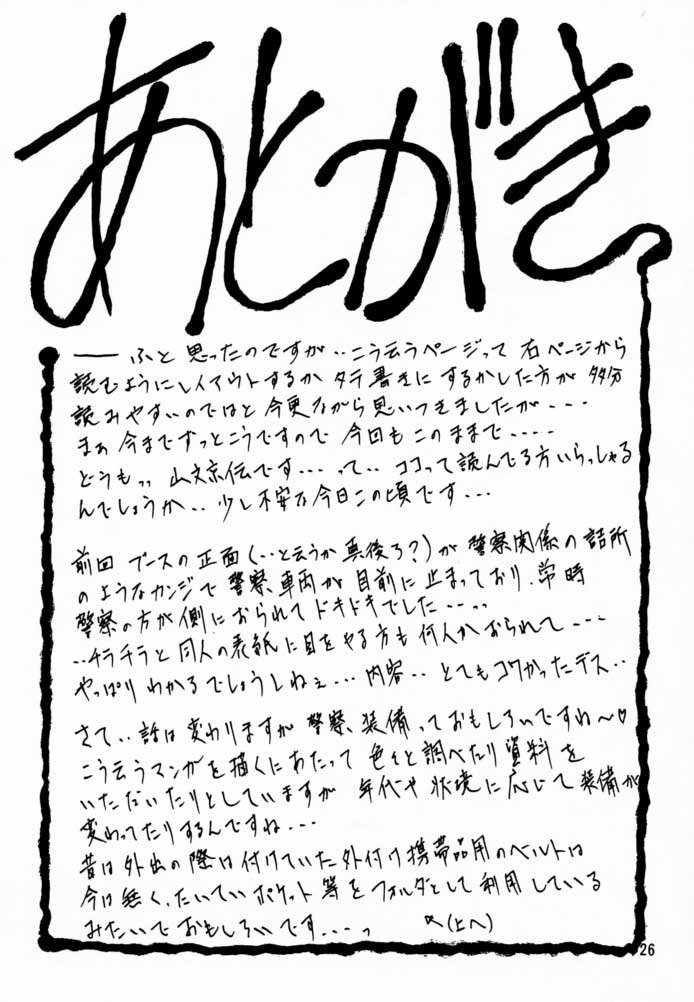 あとがき
── ふと思ったのですが‥こう云うページって右ページから
読むようにレイアウトするかタテ書きにするかした方が多分
読みやすいのではと今更ながら思いつきましたが‥‥
まぁ今までずっとこうですので今回もこのままで‥‥‥
どうもっ。山文京伝です‥‥って‥ココって読んでる方いらっしゃる
んでしょうか‥少し不安な今日この頃です‥‥
前回ブースの正面(‥と云うか真後ろ?)が警察関係の詰所
のようなカンジで警察車両が目前に止まっており、常時
警察の方が側におられてドキドキでした‥‥っ
‥チラチラと同人の表紙に目をやる方も何人かおられて‥‥
やっぱりわかるでしょうしねぇ‥‥内容‥とてもコワかったデス‥
さて‥話は変わりますが警察装備っておもしろいですね〜♡
こう云うマンガを描くにあたって色々と調べたり資料を
いただいたりとしていますが年代や状境に応じて装備が
変わってたりするんですね‥‥
昔は外出の際は付けていた外付け携帯品用のベルトは
今は無く、たいていポケット等をフォルダとして利用している
みたいでおもしろいです‥‥っ (上へ)
26